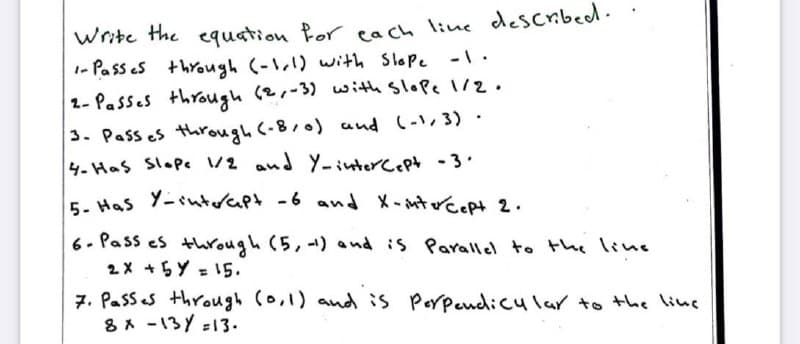 Write the equation for each line described.
1- Passes through (-1,1) with Slope -1.
2- Passes through (2,-3) with Slope 1/2.
3- Passes through (-8,0) and (-1,3).
4- Has Slope 1/2 and Y-intercept -3.
5- Has Y-intercept -6 and X-intercept 2.
6- Passes through (5,-1) and is Parallel to the line
2X + 5Y = 15.
7. Passes through (0,1) and is Perpendicular to the line
8X -13Y =13.